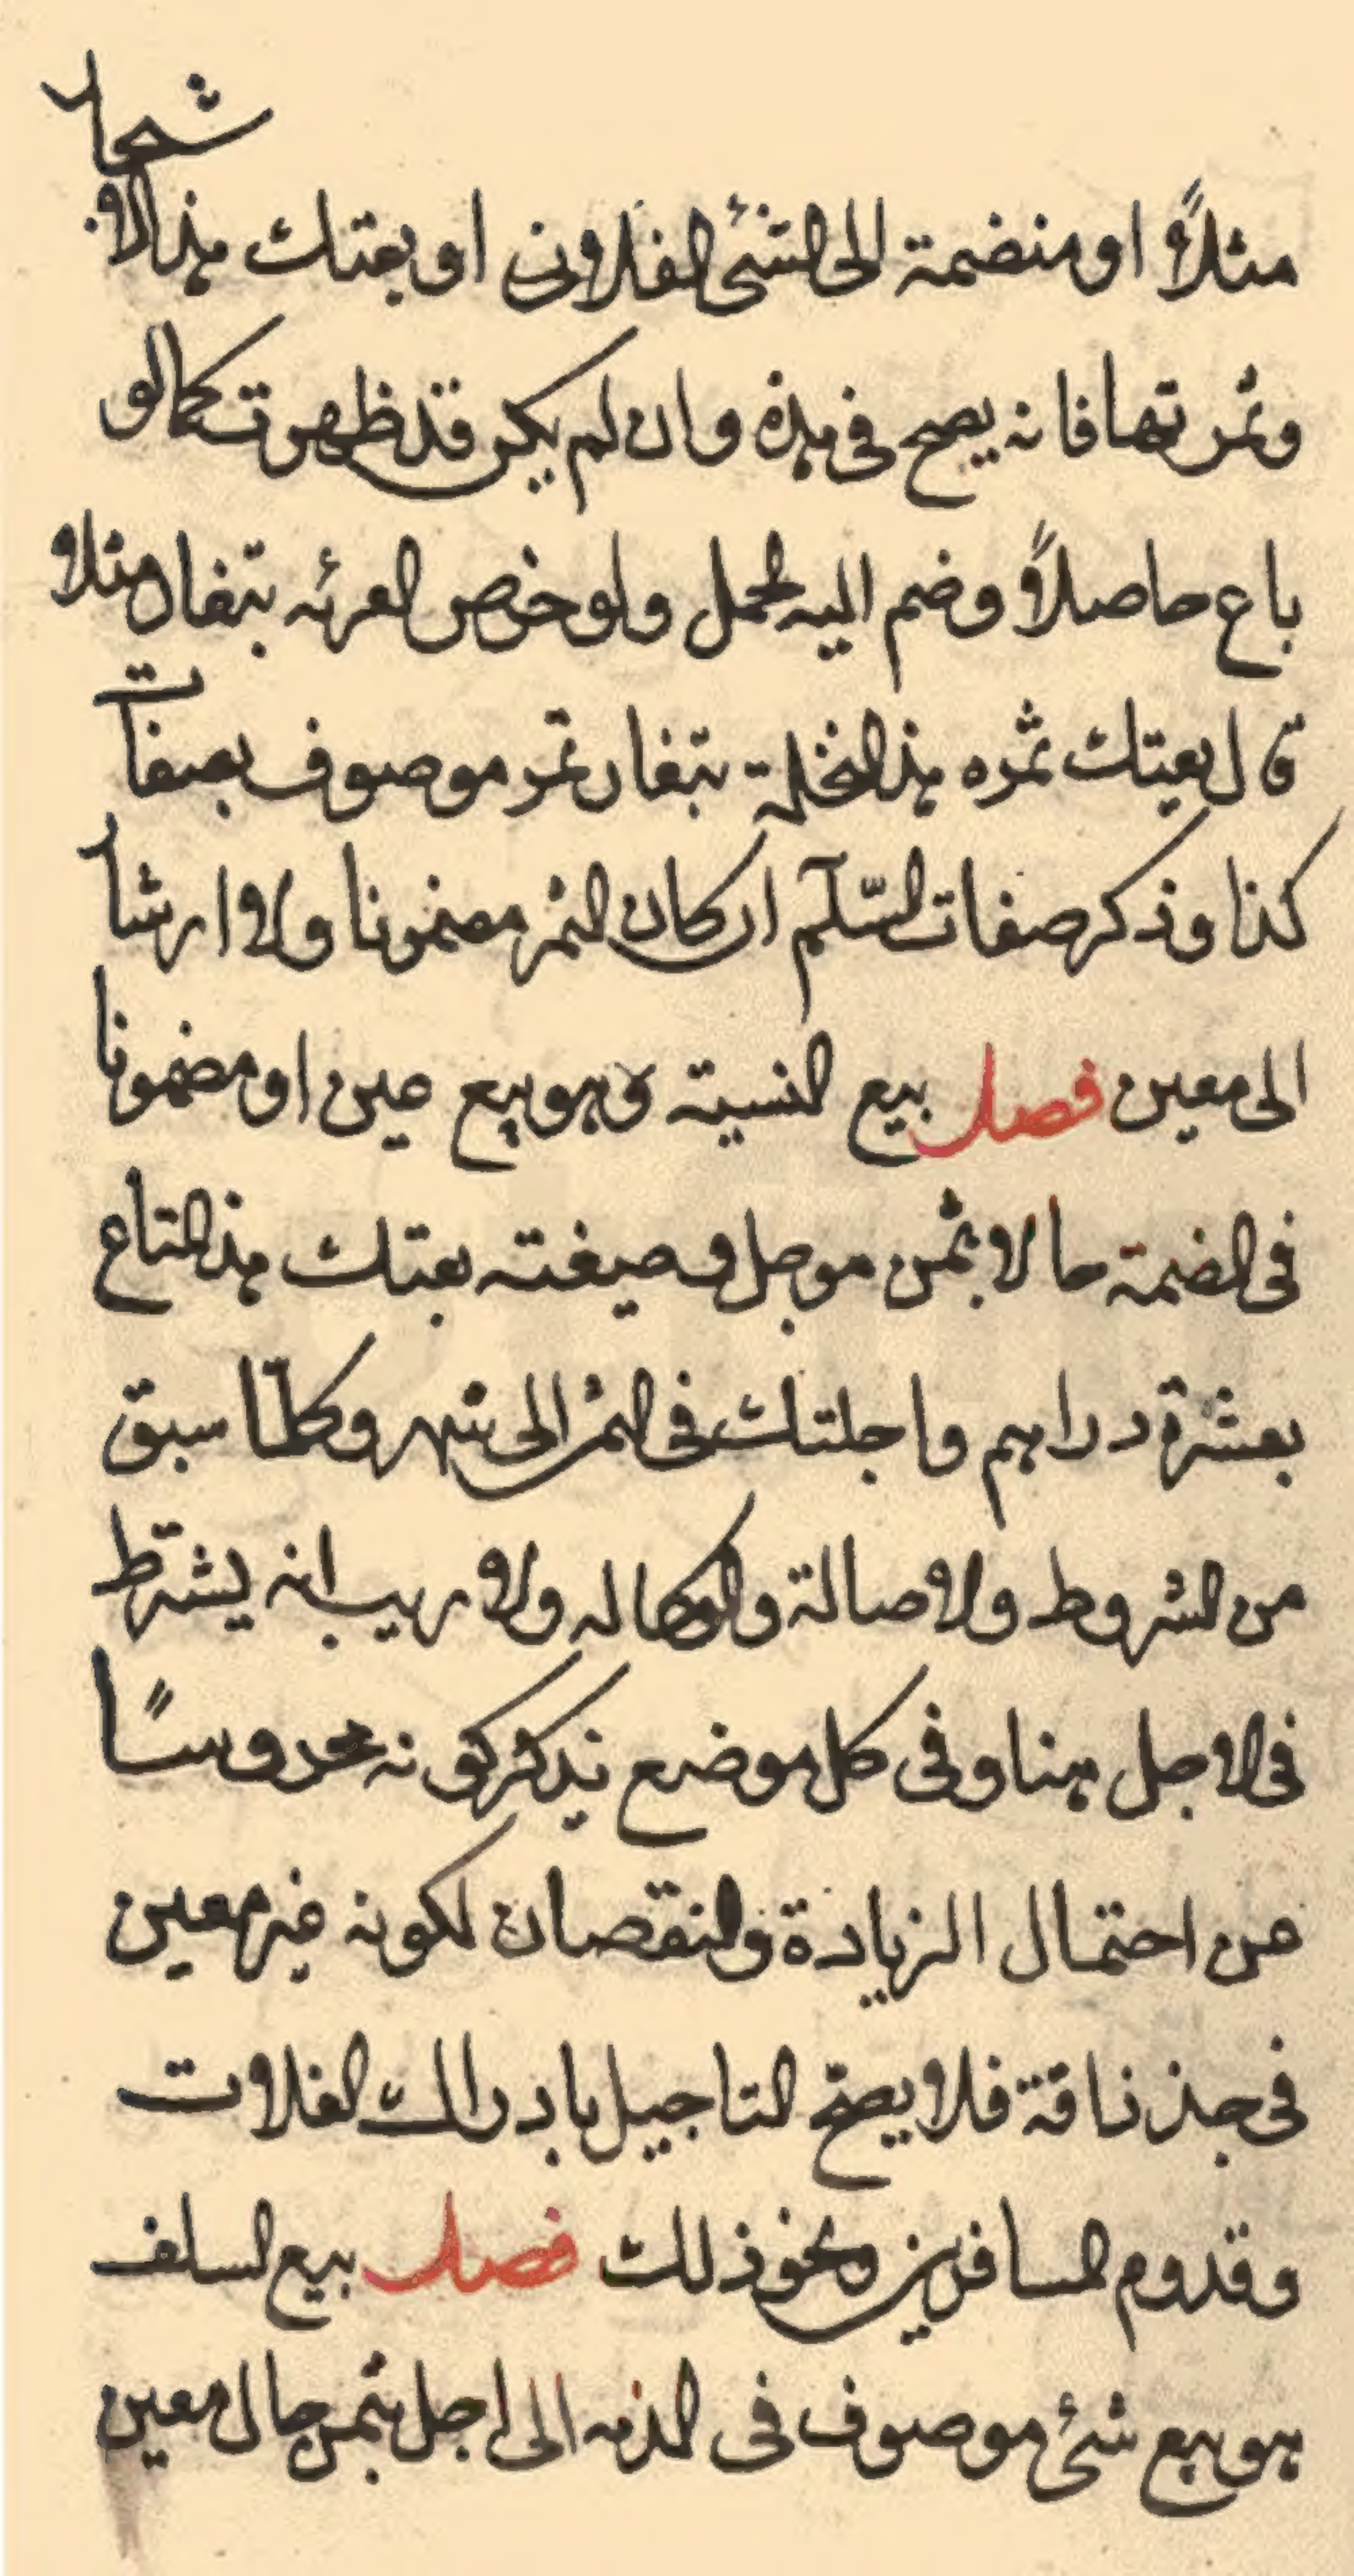 مثلاً او منضمة الى الشئ الفلانى او بعتك هذا الاشجار
وثمرتها فانه يصح فى هذه وان لم يكن قد ظهرت كما لو
باع حاصلاً وضم اليه لحمل ولو خص العرئه بتفاد مثلا
قال بعتك ثمره هذ النخلة بتفاد تمر موصوف بصفات
كذا وذكر صفات السّلم ان كان الثمر مضمونا ولا ارشا
الى معين فصل بيع النسية وهو بيع عين او مضمونا
فى الضمة حالا بثمن موجل وصيغته بعتك هذ المتاع
بعشرة دراهم واجلتك فى الثمن الى شهر وكلّما سبق
من الشروط ولاصالة والوكاله ولا ريب انه يشترط
فى الاجل هنا وفى كل موضع نذكر كونه محروسًا
عن احتمال الزيادة والنقصان لكونه غير معين
فى حذ ذاقة فلا يصحّ التاجيل بادراك الغلات
وقدوم المسافرين ونحو ذلك فصل بيع السلف
هو بيع شئ موصوف فى الذمه الى اجل بثمن حال معين